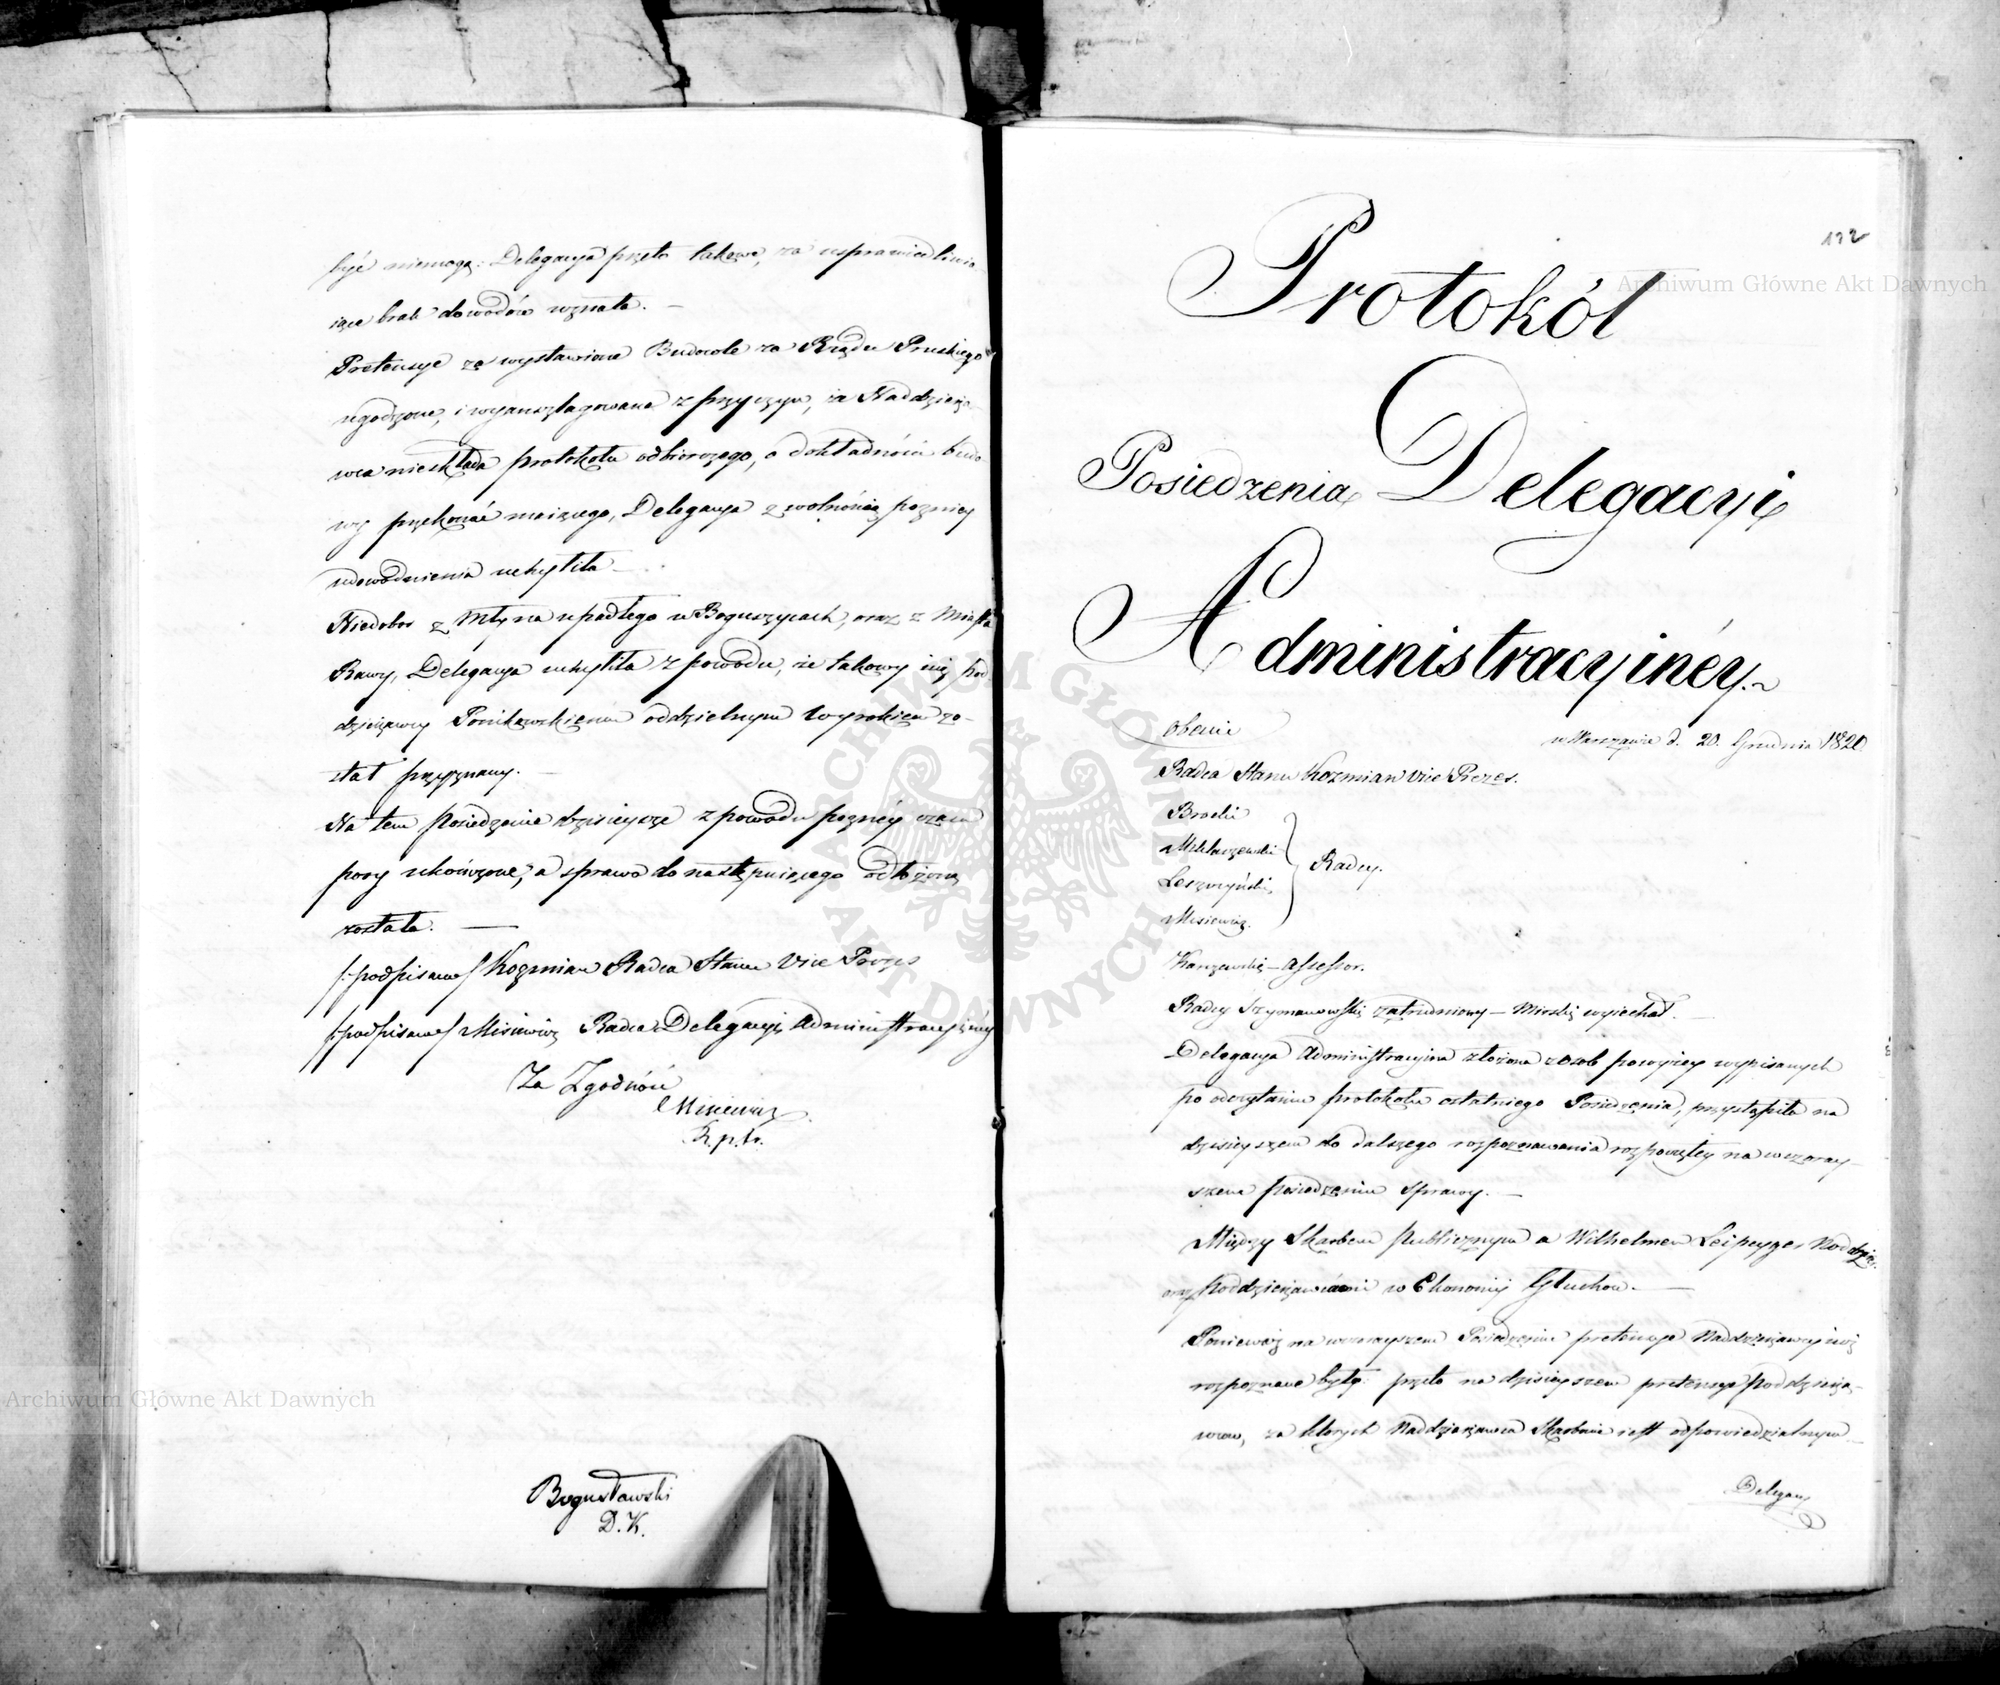 być niemogą: Delegacya przeto takowe, za usprawiedliwia-
iące brak dowodów uznała. —
Pretensye za wystawione Budowle za Rządu Pruskiego
ugodzone, i wyanszlagowane z przyczyn, że Naddzierża-
wca nieskłada protokułu odbiorczego, o dokładności budo-
wy przekonać maiącego, Delegacya z wolnością pozniey
udowodnienia uchyliła —
Niedobor z Młyna upadłego w Boguszycach, oraz z Miasta
Rawy, Delegacya uchyliła z powodu, że takowy iuż Pod-
dzierżawcy Ponikowskiemu oddzielnym Wyrokiem zo-
stał przyznany. —
Na tem Posiedzenie dzisieysze z powodu pozney czasu
pory ukończone, a sprawa do następuiącego odłożoną
została. —
/:podpisano/ Kozmian Radca Stanu Vice Prezes
/:podpisano/ Misiewicz Radca Delegacyi Administracyiney
Za Zgodność
Misiewicz
R. p. tr.
Bogusławski
D. K.
132
Protokół
Posiedzenia Delegacyi
Administracyinéy.
Obecni
w Warszawie d. 20. Grudnia 1820.
Radca Stanu Kozmian Vice Prezes.
Brocki
Mikłaszewski
Leszczyński
Misiewicz.
Radcy.
Karczewski — Assessor.
Radcy Szymanowski zatrudniony — Mirski wyiechał. —
Delegacya Administracyina złożona z osob powyżey wypisanych
po odczytaniu protokułu ostatniego Posiedzenia, przystąpiła na
dzisieyszem do dalszego rozpoznawania rozpoczętey na wczoray-
szem posiedzeniu Sprawy. —
Między Skarbem Publicznym a Wilhelmem Leipzyger Naddzier.
oraz Poddzierżawcami w Ekonomii Głuchow. —
Ponieważ na wczorayszem Posiedzeniu pretensye Naddzierżawcy iuż
rozpoznane były: przeto na dzisieyszem pretensye Poddzierża-
wcow, za ktorych Naddzierżawca Skarbowi iest odpowiedzialnym —
Delegacy
Archiwum Główne Akt Dawnych
Archiwum Główne Akt Dawnych
ARCHIWUM GŁÓWNE AKT DAWNYCH